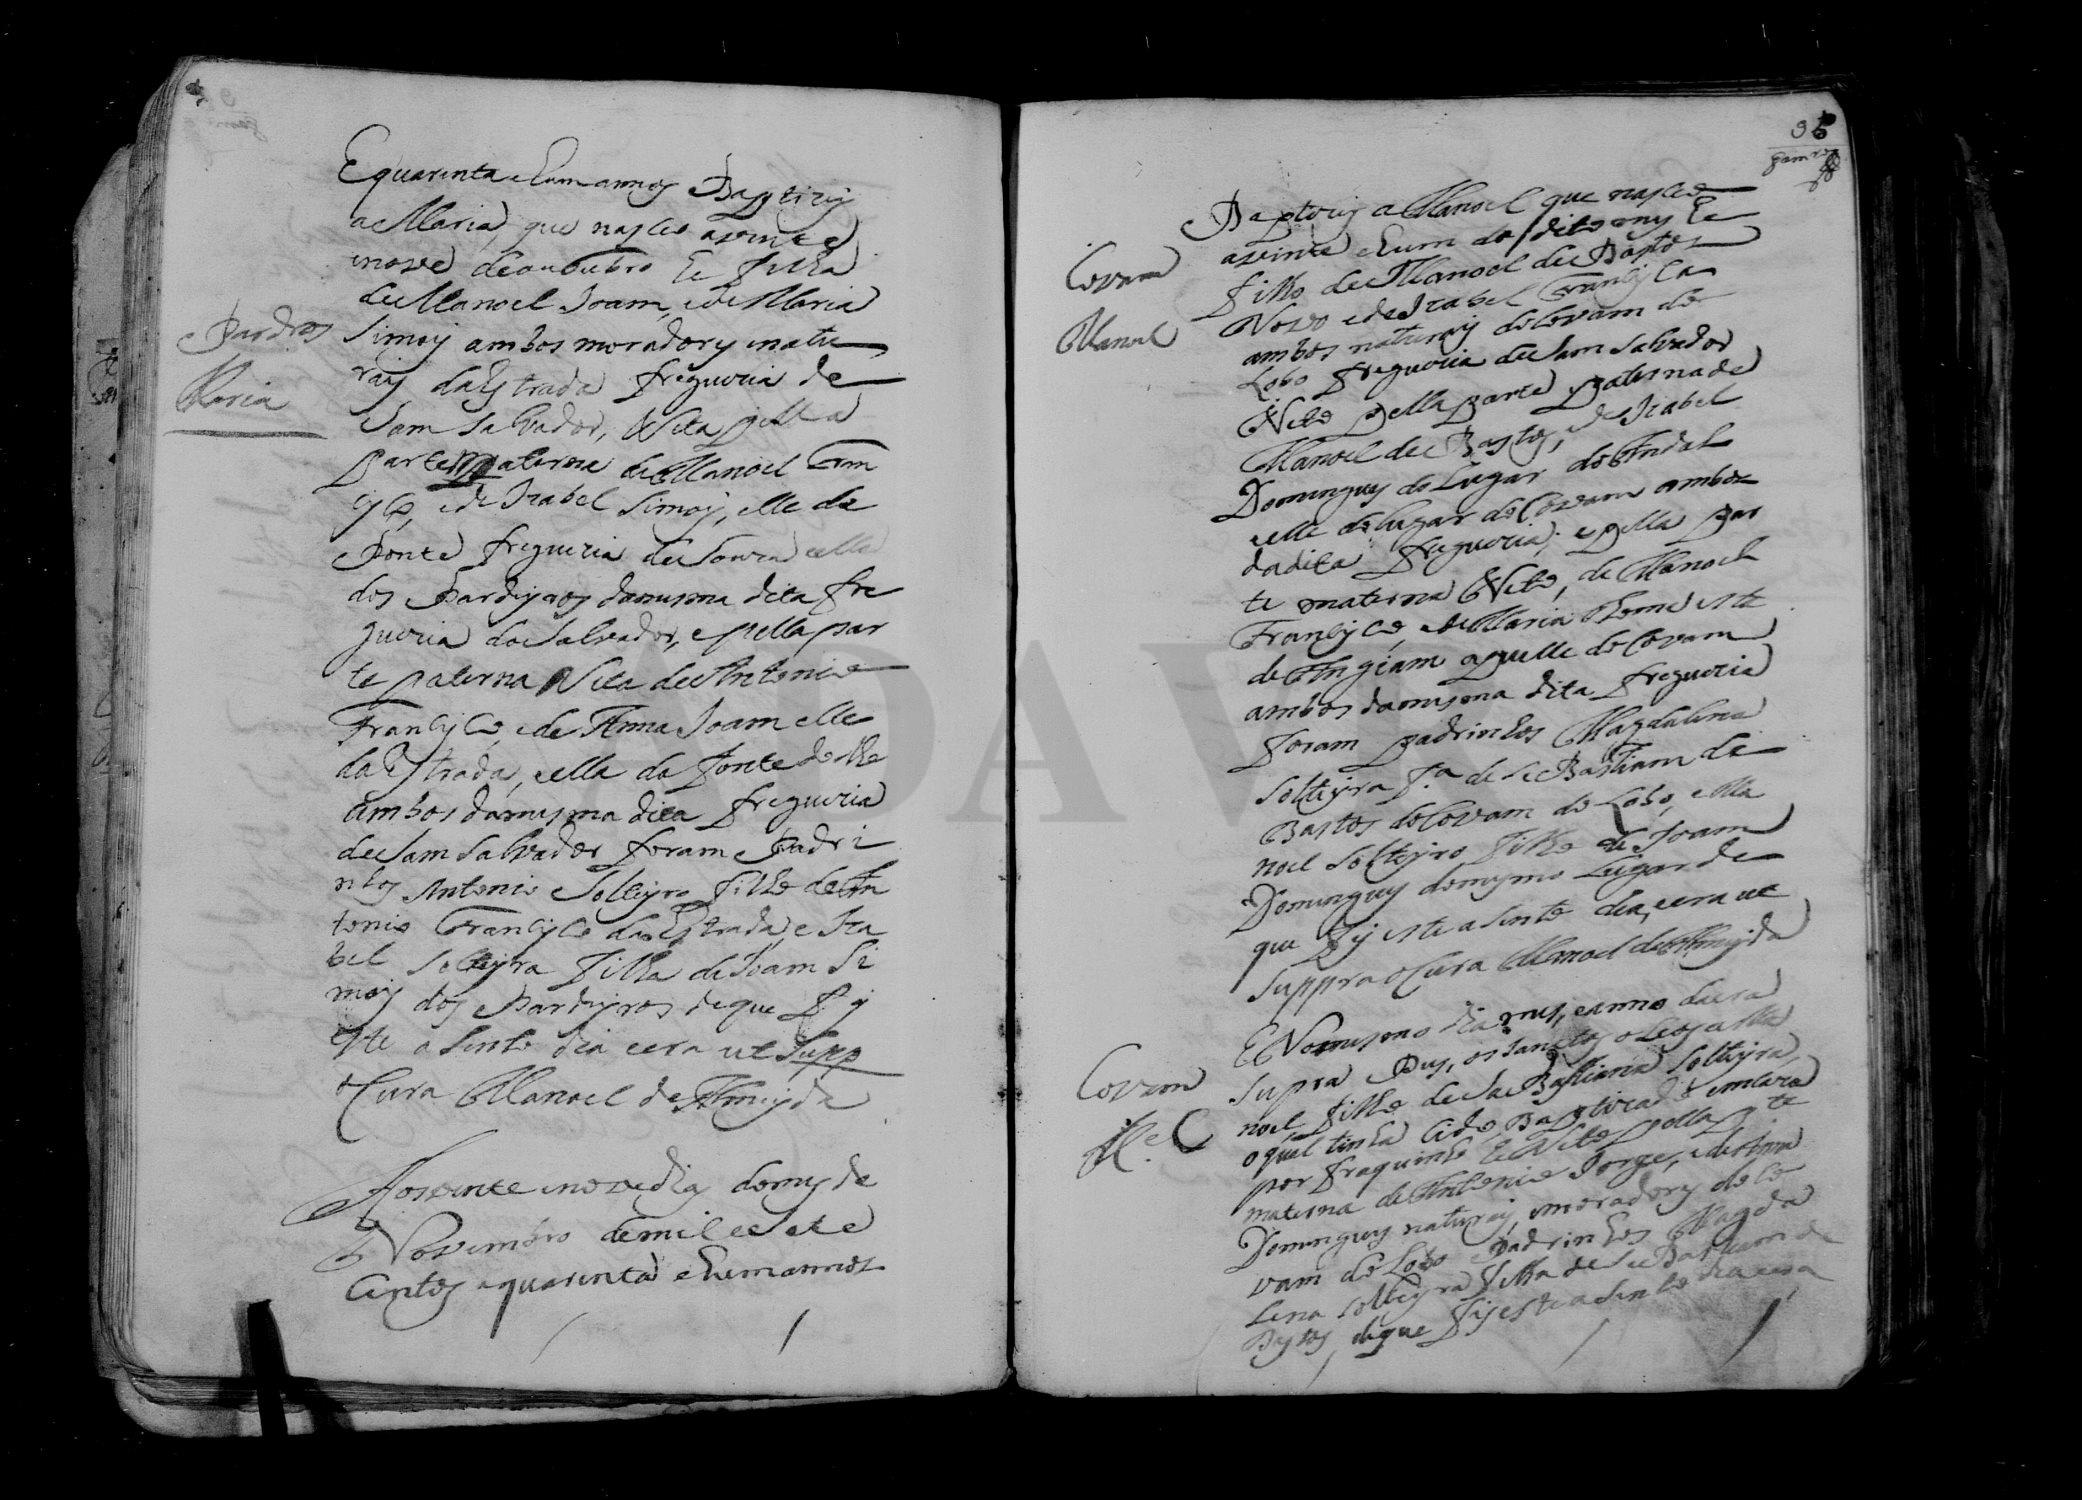 E quarenta e hum annos Baptizej
a Maria, que nasceo a vinte e
nove de outubro he filha
de Manoel Joam, e de Maria
Simoij ambos moradores e natu
raij da Estrada freguezia de
Sam Salvador, Neta pella
parte materna de Manoel Fran
cisco, e de Izabel Simoij, elle da
Ponte freguezia de Souza e ella
dos Pardeyros da mesma dita fre
guezia do Salvador, e pella par
te paterna Neta de Antonio
Francisco, e de Anna Joam elle
da Estrada, e ella da fonte de
ambos da mesma dita freguezia
de Sam Salvador foram Padri
nhos Antonio Solteyro filho de An
tonio Francisco da Estrada, e Iza
bel Solteyra filha de Joam Si
moij dos Pardeyros de que fij
este asento dia e era ut supp
o Cura Manoel de Almeyda
Pardros
Maria
Aos vinte e nove dias do mes de
Novembro de mil e sete
centos e quarenta e hum annos
96
Baptizej a Manoel que nasceo
a vinte e hum do dito mes he
filho de Manoel de Bastos
Novo e de Izabel Francisca
ambos naturaij do Covam do
Lobo freguezia de Sam Salvador
Neto pella parte paterna de
Manoel de Bastos, e de Izabel
Domingues do Lugar do
e elle do lugar do Covam ambos
da dita freguezia; e pella par
te materna Neto, de Manoel
Francisco, e de Maria Thome este
de Angiam aquelle do Covam
ambos da mesma dita freguezia
foram padrinhos Magdalena
solteyra f.a de Sebastiam de
Bastos do Covam do Lobo, e Ma
noel Solteyro filho de Joam
Domingues do mesmo Lugar de
que fij este asento dia, e era ut
suppra o Cura Manoel de Almeyda
Covam
Manoel
E No mesmo dia, mes, e anno da era
supra Pus, os Sanctos oleos a Ma
noel filho de Sebastiana Solteyra,
o qual tinha sido Baptizado em caza
por fraquinho he Neto pella p.te
materna de Antonio Jorge, e de Anna
Domingues naturaij, e moradores do Co
vam do Lobo Padrinhos Magda
lena solteyra filha de Sebastiam de
Bastos de que fij este asento dia e era
Covam
M.el